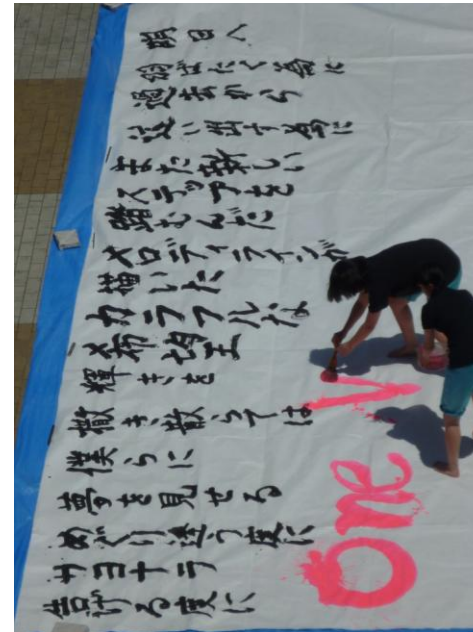 明日へ
羽ばたく為に
過去から
這い出す為に
また新しい
ステップを
踏むんだ
メロディラインが
描いた
カラフルな
希望
輝きを
撒き散らしては
僕らに
夢を見せる
めぐり逢う度に
サヨナラ
告げる度に
One V